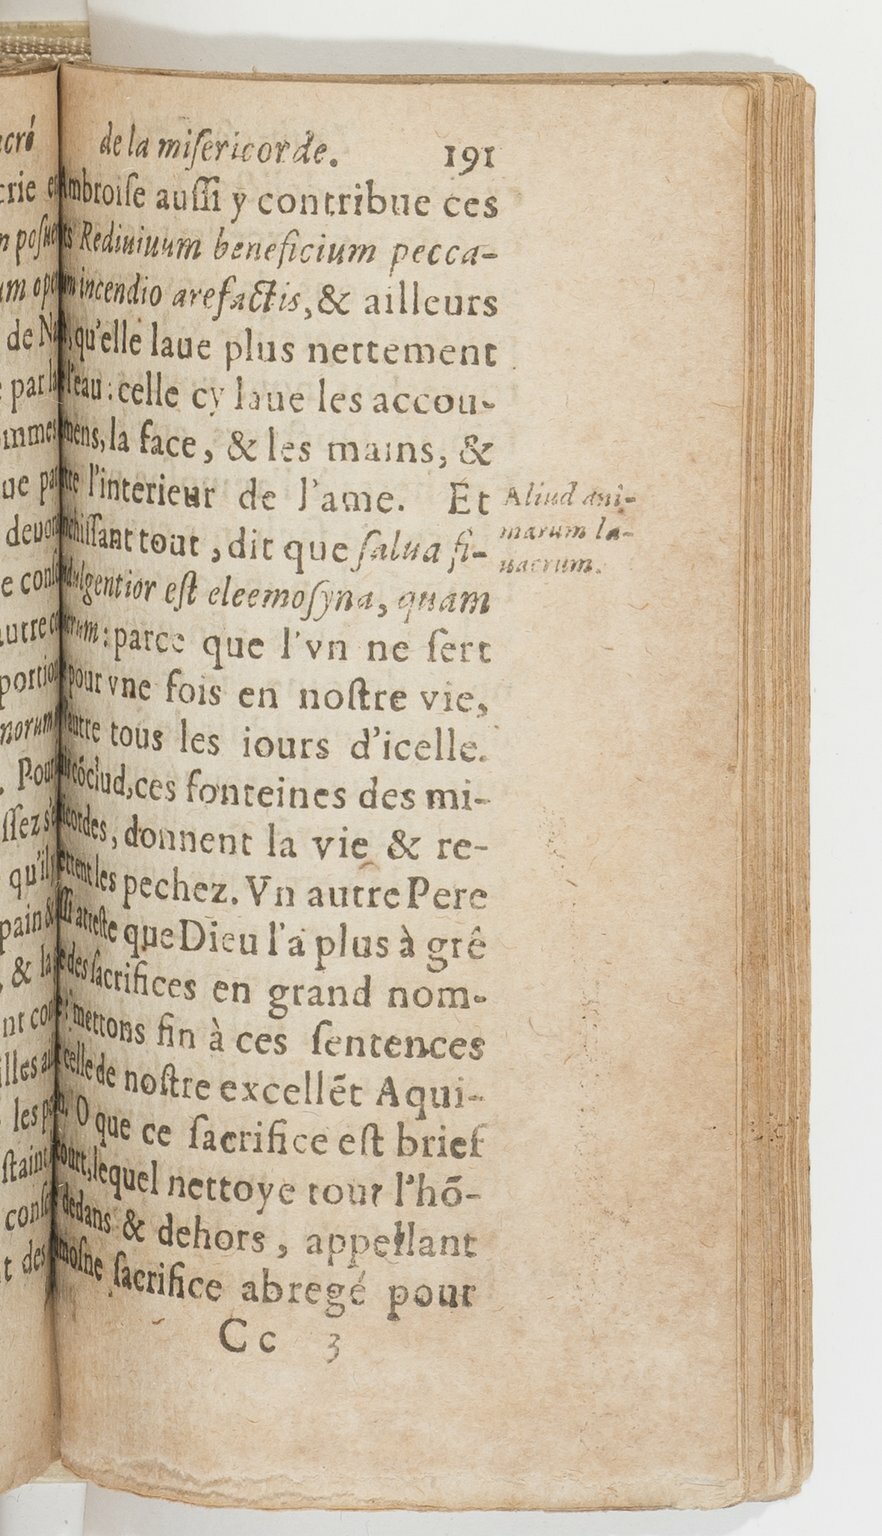 de la miſericorde. 191
mbroiſe auſſi y contribue ces
Rediuiuum beneficium pecca-
incendio arefactis, & ailleurs
qu'elle laue plus nettement
l'eau: celle cy laue les accou-
mens, la face, & les mains, &
l'interieur de l'ame. Et
chiſſant tout, dit que ſalua fi-
dulgentior eſt eleemoſyna, quam
rum: parce que l'vn ne ſert
pour vne fois en noſtre vie,
autre tous les iours d'icelle.
cõclud, ces fonteines des mi-
cordes, donnent la vie & re-
ettent les pechez. Vn autre Pere
atteſte que Dieu l'a plus à gré
des ſacrifices en grand nom-
mettons fin à ces ſentences
celle de noſtre excellẽt Aqui-
O que ce ſacrifice eſt brief
ourt, lequel nettoye tout l'hõ-
dedans & dehors, appellant
moſne ſacrifice abregé pour
Cc 3
Aliud ani-
marum la-
uacrum.